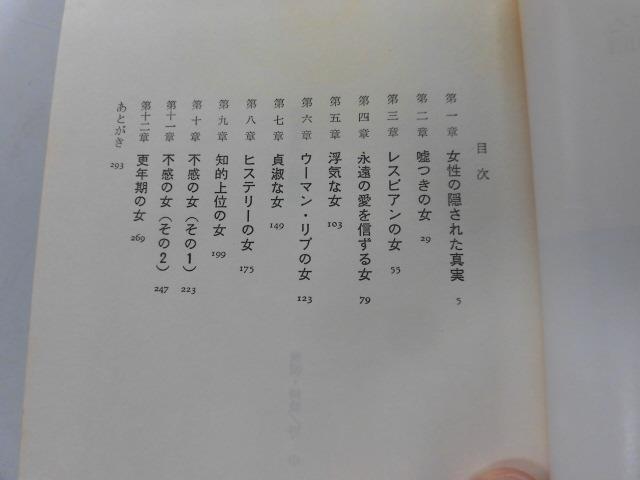 目次
第一章 女性の隠された真実 5
第二章 嘘つきの女 29
第三章 レスビアンの女 55
第四章 永遠の愛を信ずる女 79
第五章 浮気な女 103
第六章 ウーマン・リブの女 123
第七章 貞淑な女 149
第八章 ヒステリーの女 175
第九章 知的上位の女 199
第十章 不感の女(その1) 223
第十一章 不感の女(その2) 247
第十二章 更年期の女 269
あとがき 293